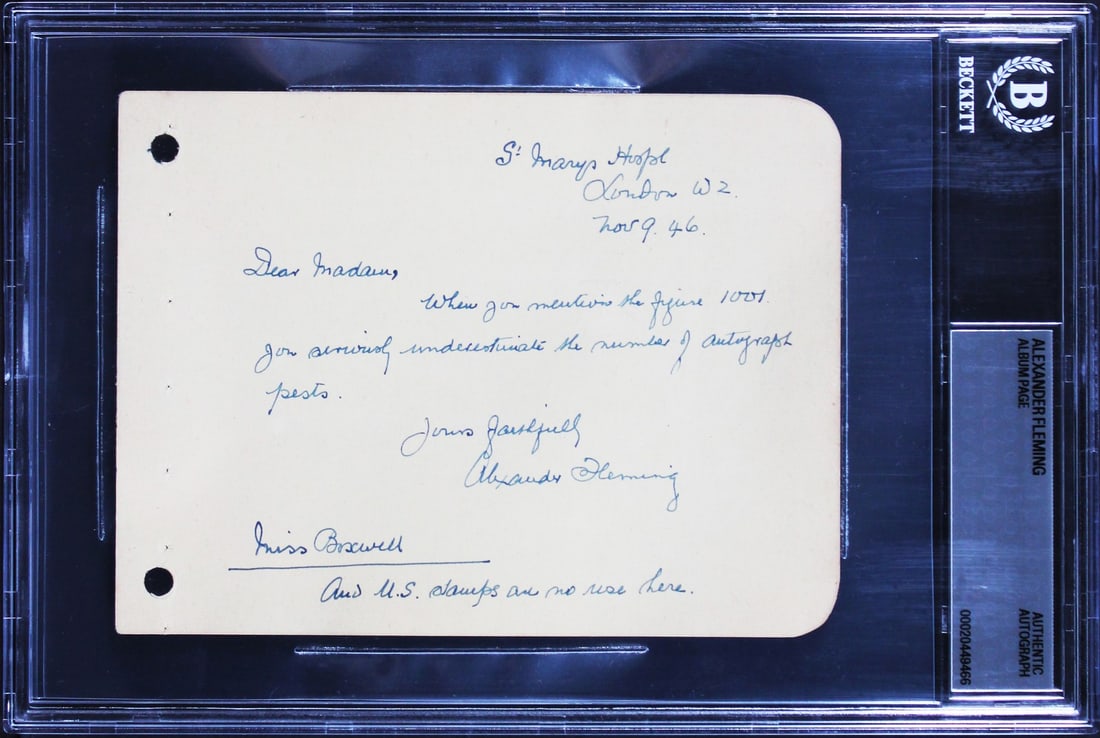 St Marys Hospl
London W2.
Nov 9. 46.
Dear Madam,
When you mention the figure 1001.
you seriously underestimate the number of autograph
pests.
Yours faithfully
Alexander Fleming
Miss Boxwell
And U.S. stamps are no use here.
B
BECKETT
ALEXANDER FLEMING
ALBUM PAGE
AUTHENTIC
AUTOGRAPH
00020449466